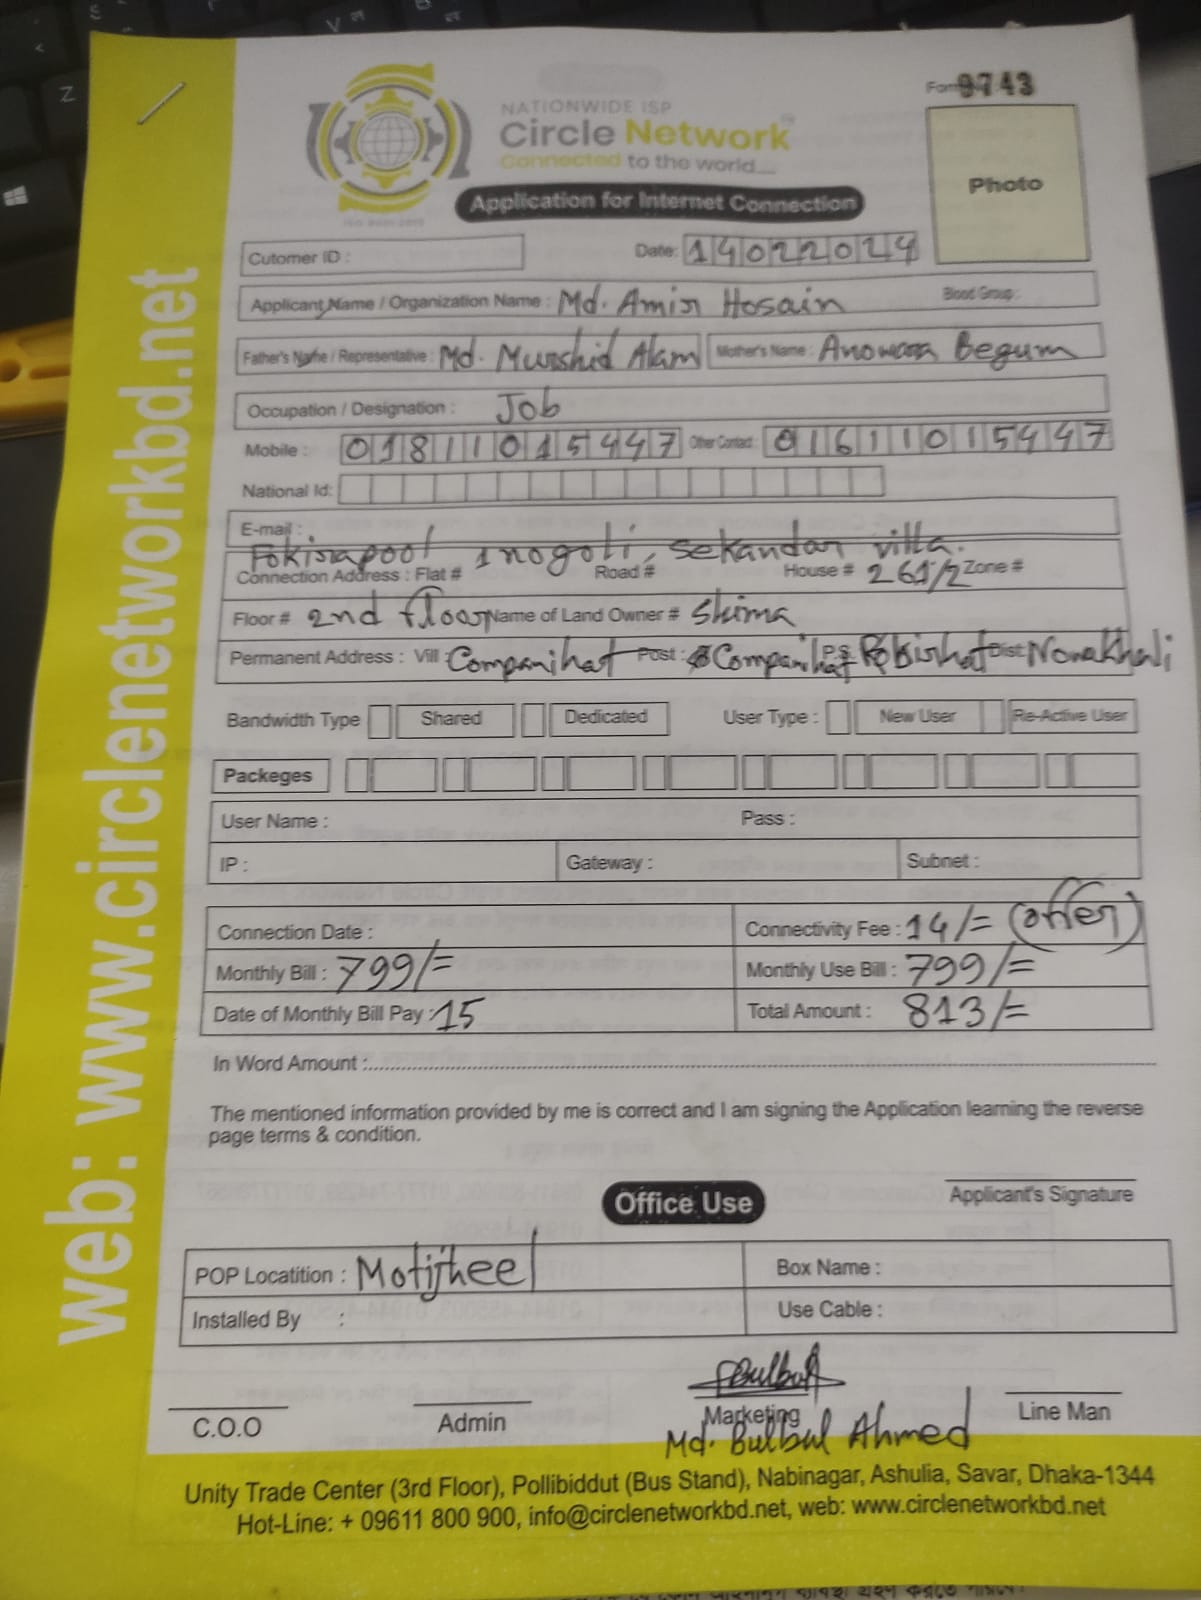 web: www.circlenetworkbd.net
Form 9743
NATIONWIDE ISP
Circle Network
Connected to the world...
Application for Internet Connection
Photo
Cutomer ID :
Date: 14022024
Applicant Name / Organization Name : Md. Amir Hosain Blood Group :
Father's Name / Representative : Md. Murshid Alam Mother's Name : Anowara Begum
Occupation / Designation : Job
Mobile : 01811015447 Other Contact : 01611015447
National Id:
E-mail :
Fokirapool 1nogoli, sekandar villa.
Connection Address : Flat # Road # House # 261/2 Zone #
Floor # 2nd floor Name of Land Owner # Shima
Permanent Address : Vill Companihat Post : Companihat P.S Dist: Noakhali
Bandwidth Type Shared Dedicated User Type : New User Re-Active User
Packeges
User Name : Pass :
IP : Gateway : Subnet :
Connection Date : Connectivity Fee : 14/= (offer)
Monthly Bill : 799/= Monthly Use Bill : 799/=
Date of Monthly Bill Pay : 15 Total Amount : 813/=
In Word Amount :
The mentioned information provided by me is correct and I am signing the Application learning the reverse
page terms & condition.
Applicant's Signature
Office Use
POP Locatition : Motijheel Box Name :
Installed By : Use Cable :
Bulbul
C.O.O Admin Marketing Line Man
Md. Bulbul Ahmed
Unity Trade Center (3rd Floor), Pollibiddut (Bus Stand), Nabinagar, Ashulia, Savar, Dhaka-1344
Hot-Line: + 09611 800 900, info@circlenetworkbd.net, web: www.circlenetworkbd.net